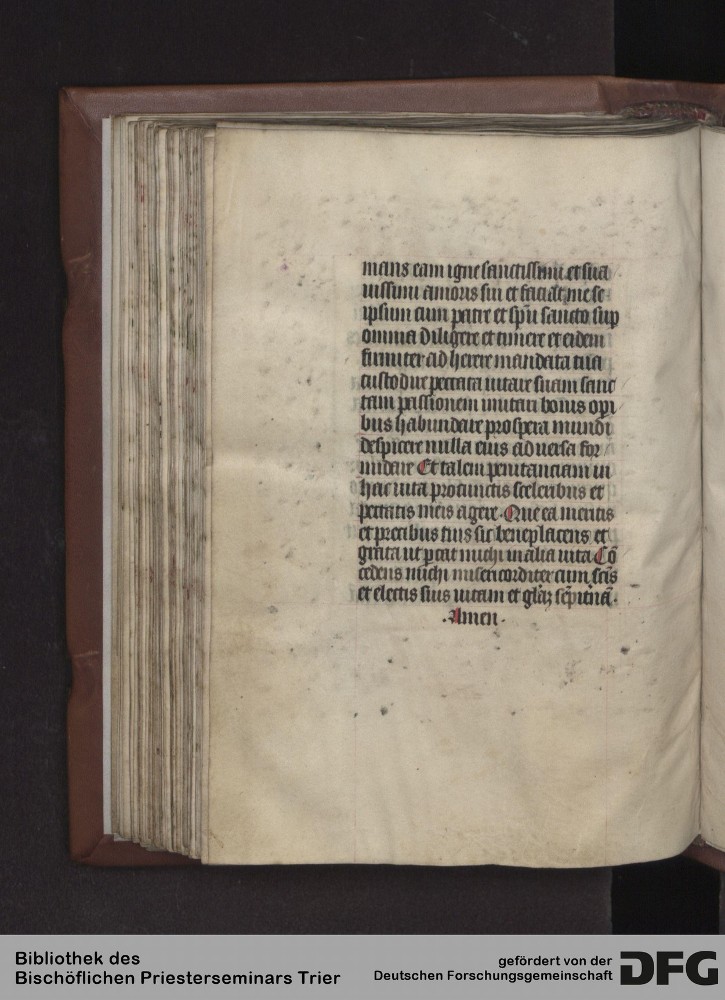 mans eam igne sanctissimi et sua
uissimi amoris sui et faciat me se
ipsum cum patre et spū sancto sup
omnia diligere et timere et eidem
firmiter ad herere mandata tua
custodire peccata uitare suam sanc
tam passionem imitari bonis opi
bus habundare prospera mundi
despicere nulla eius aduersa for
midare Et talem penitanciam in
hac uita pro cunctis sceleribus et
peccatis meis agere. Que ea meritis
et precibus tuis sic beneplacens et
grata ut pcat michi in alia uita Cō
cedens michi misericorditer cum scīs
et electis suis uitam et glāꝫ sēpitnā.
.Amen.
Bibliothek des
Bischöflichen Priesterseminars Trier
gefördert von der
Deutschen Forschungsgemeinschaft
DFG